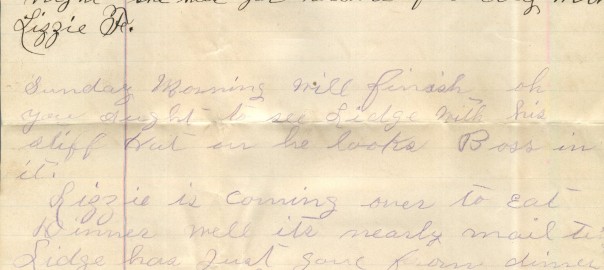 Lizzie F.
Sunday Morning will finish oh
you aught to see Lidge with his
stiff Hat on he looks Boss in
it.
Lizzie is coming over to Eat
Dinner well its nearly mail ti
Lidge has Just gone from dinner